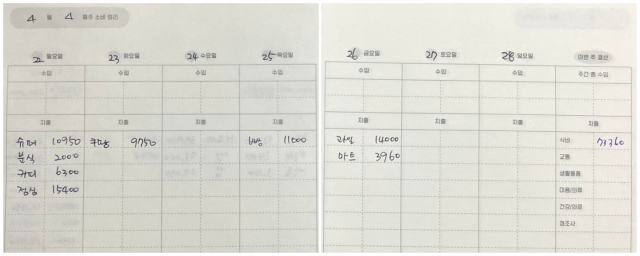 4 월 4 째주 소비 정리
22 월요일 23 화요일 24 수요일 25 목요일
수입 수입 수입 수입
지출 지출 지출 지출
슈퍼 10950 쿠팡 9750 빵 11000
분식 2000
커피 6300
점심 15400
26 금요일 27 토요일 28 일요일 이번 주 결산
수입 수입 수입 주간 총 수입
지출 지출 지출 지출
과일 14000 식비 73360
마트 3960 교통
생활용품
미용/의류
건강/의료
경조사